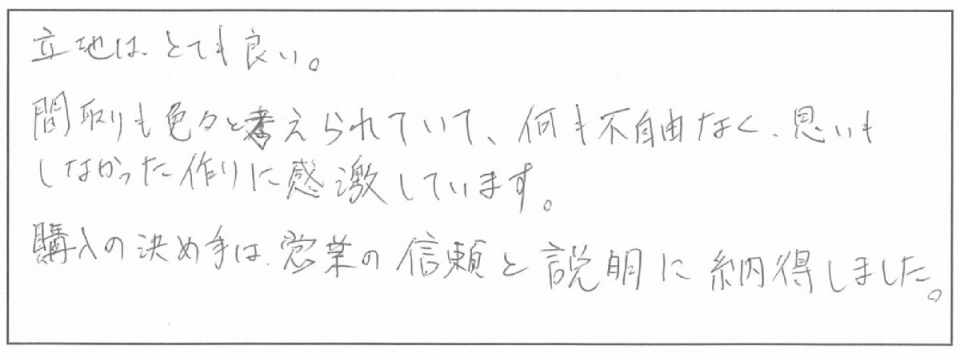 立地は、とても良い。
間取りも色々と考えられていて、何も不自由なく、思いも
しなかった作りに感激しています。
購入の決め手は、営業の信頼と説明に納得しました。